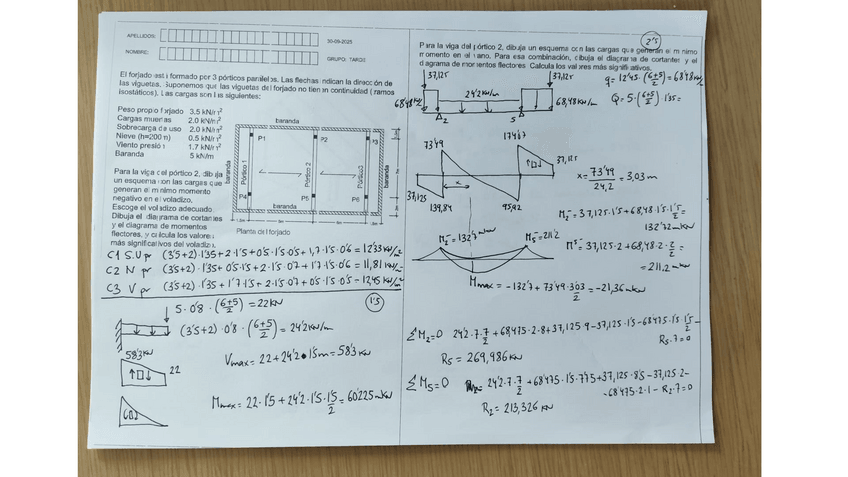 APELLIDOS:
30-09-2025
NOMBRE:
GRUPO: TARDE
El forjado está formado por 3 pórticos paralelos. Las flechas indican la dirección de
las viguetas. Suponemos que las viguetas del forjado no tienen continuidad (tramos
isostáticos). Las cargas son las siguientes:
Peso propio forjado 3.5 kN/m²
Cargas muertas 2.0 kN/m²
Sobrecarga de uso 2.0 kN/m²
Nieve (h=200m) 0.5 kN/m²
Viento presión 1.7 kN/m²
Baranda 5 kN/m
Para la viga del pórtico 2, dibuja
un esquema con las cargas que
generan el mínimo momento
negativo en el voladizo.
Escoge el voladizo adecuado.
Dibuja el diagrama de cortantes
y el diagrama de momentos
flectores, y calcula los valores
más significativos del voladizo.
baranda
baranda
baranda
baranda
P1
P2
P3
P4
P5
P6
Pórtico 1
Pórtico 2
Pórtico3
Planta del forjado
C1 S.U pr (3'5+2)·1'35+2·1'5+0'5·1'5·0'5+1,7·1'5·0'6=12'33 kN/m²
C2 N pr (3'5+2)·1'35+0'5·1'5+2·1'5·0'7+1'7·1'5·0'6=11,81 kN/m²
C3 V pr (3'5+2)·1'35+1'7·1'5+2·1'5·0'7+0'5·1'5·0'5=12,45 kN/m²
1'5
5·0'8·(6+5/2)=22 kN
(3'5+2)·0'8·(6+5/2)=24'2 kN/m
58'3 kN
22
Vmax=22+24'2·1'5m=58'3 kN
Mmax=22·1'5+24'2·1'5·1'5/2=60'225 mkN
2'5
Para la viga del pórtico 2, dibuja un esquema con las cargas que generan el mínimo
momento en el vano. Para esa combinación, dibuja el diagrama de cortantes y el
diagrama de momentos flectores. Calcula los valores más significativos.
37,125
37,125
q=12'45·(6+5/2)=68'48 kN/m
68,48 kN/m
24'2 kN/m
68,48 kN/m
Q=5·(6+5/2)·1'35=
2
5
73'49
37,125
139,84
x
95,92
37,125
x=73'49/24,2=3,03 m
M₂⁻=37,125·1'5+68,48·1'5·1'5/2=
132'72 mkN
M₅⁻=37,125·2+68,48·2·2/2=
=211,2 mkN
M₂⁻=132'7 mkN
M₅⁻=211'2
Mmax=-132'7+73'49·3'03/2=-21,36 mkN
ΣM₂=0 24'2·7·7/2+68,475·2·8+37,125·9-37,125·1'5-68'475·1'5·1'5/2-
R₅·7=0
R₅=269,986 kN
ΣM₅=0 24'2·7·7/2+68'475·1'5·7'75+37,125·8'5-37,125·2-
-68'475·2·1-R₂·7=0
R₂=213,326 kN